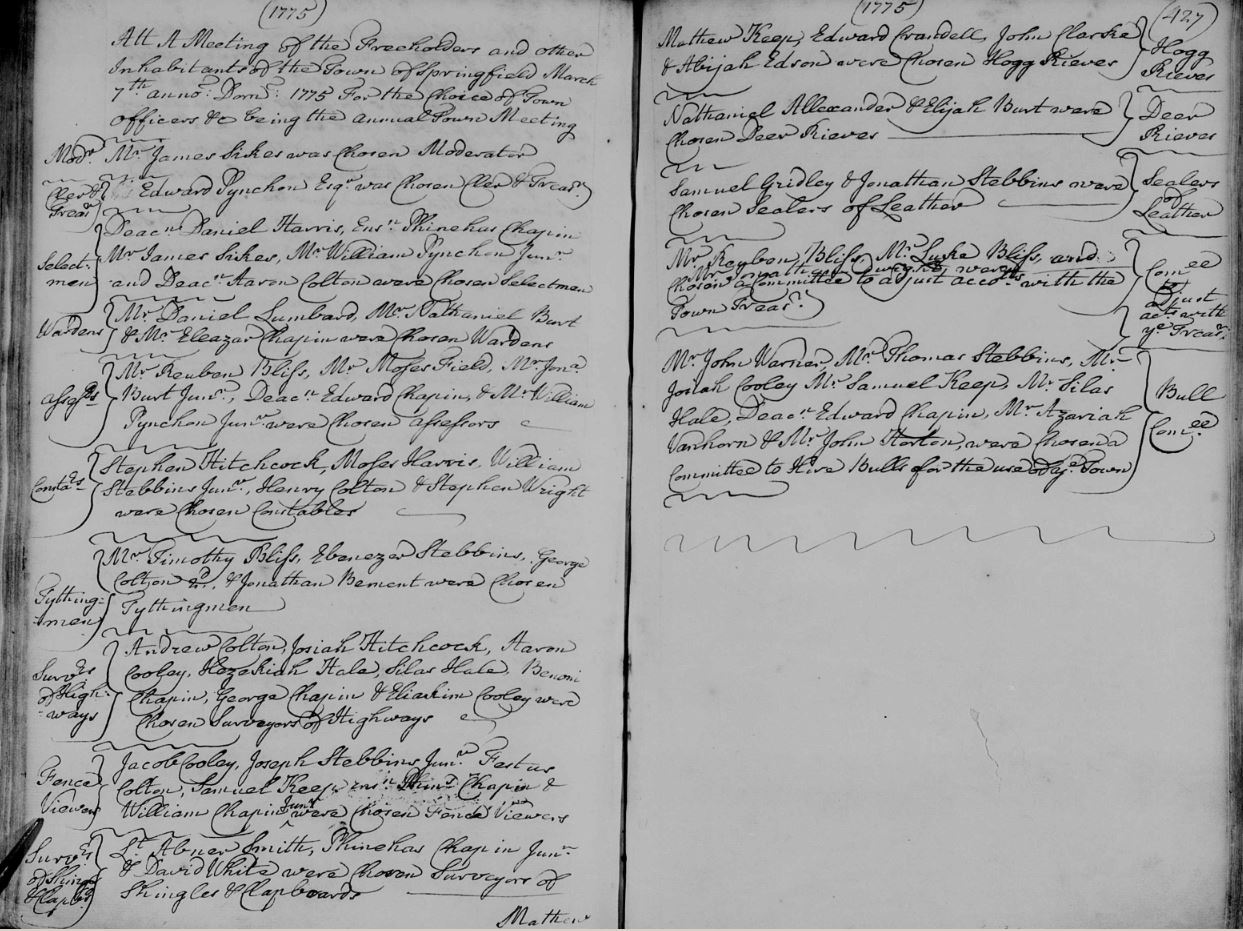 (1775)
Att A Meeting of the Freeholders and other
Inhabitants of the Town of Springfield March
7th anno: Dom: 1775 For the Choice of Town
officers &c being the annual Town Meeting
Modr Mr James Sikes was Chosen Moderator
Cler & Treasr Edward Pynchon Esqr was Chosen Cler & Treasr
Select-men
Deacn Daniel Harris, Ensn Phinehas Chapin
Mr James Sikes, Mr William Pynchon Junr
and Deacn Aaron Colton were Chosen Selectmen
Wardens
Mr Daniel Lumbard, Mr Nathaniel Burt
& Mr Eleazar Chapin were Chosen Wardens
assessrs
Mr Reuben Bliss, Mr Moses Field, Mr Jona
Burt Junr, Deacn Edward Chapin, & Mr William
Pynchon Junr were Chosen assessors
Constas
Stephen Hitchcock, Moses Harris, William
Stebbins Junr, Henry Colton & Stephen Wright
were Chosen Constables
Tything-men
Mr Timothy Bliss, Ebenezer Stebbins, George
Colton & Jonathan Bement were Chosen
Tythingmen
Survrs of High-ways
Andrew Colton, Josiah Hitchcock, Aaron
Cooley, Hezekiah Hale, Silas Hale, Benoni
Chapin, George Chapin & Eliakim Cooley were
Chosen Surveyors of Highways
Fence Viewers
Jacob Cooley, Joseph Stebbins Junr Festus
Colton, Samuel Keep, Ensn Phins Chapin &
William Chapin Junr were Chosen Fence Viewers
Survrs of Shing & Clapbds
Lt Abner Smith, Phinehas Chapin Junr
& David White were Chosen Surveyors of
Shingles & Clapboards
Mathew
(1775)
(427)
Mathew Keep, Edward Crandell, John Clarke
& Abijah Edson were Chosen Hogg Rieves
Hogg
Rieves
Nathaniel Allexander & Elijah Burt were
Chosen Deer Rieves
Deer
Rieves
Samuel Gridley & Jonathan Stebbins were
Chosen Sealers of Leather
Sealers
of
Leather
Mr Reuben Bliss, Mr Luke Bliss, and
Mr Jonathn Dwight were
Chosen a Committee to adjust accots with the
Town Treasr
Comee
adjust
acts with
ye Treasr
Mr John Warner, Mr Thomas Stebbins, Mr
Josiah Cooley Mr Samuel Keep, Mr Silas
Hale, Deacn Edward Chapin, Mr Azariah
Vanhorn & Mr John Horton, were Chosen a
Committee to Hire Bulls for the use of ye Town
Bull
Comee